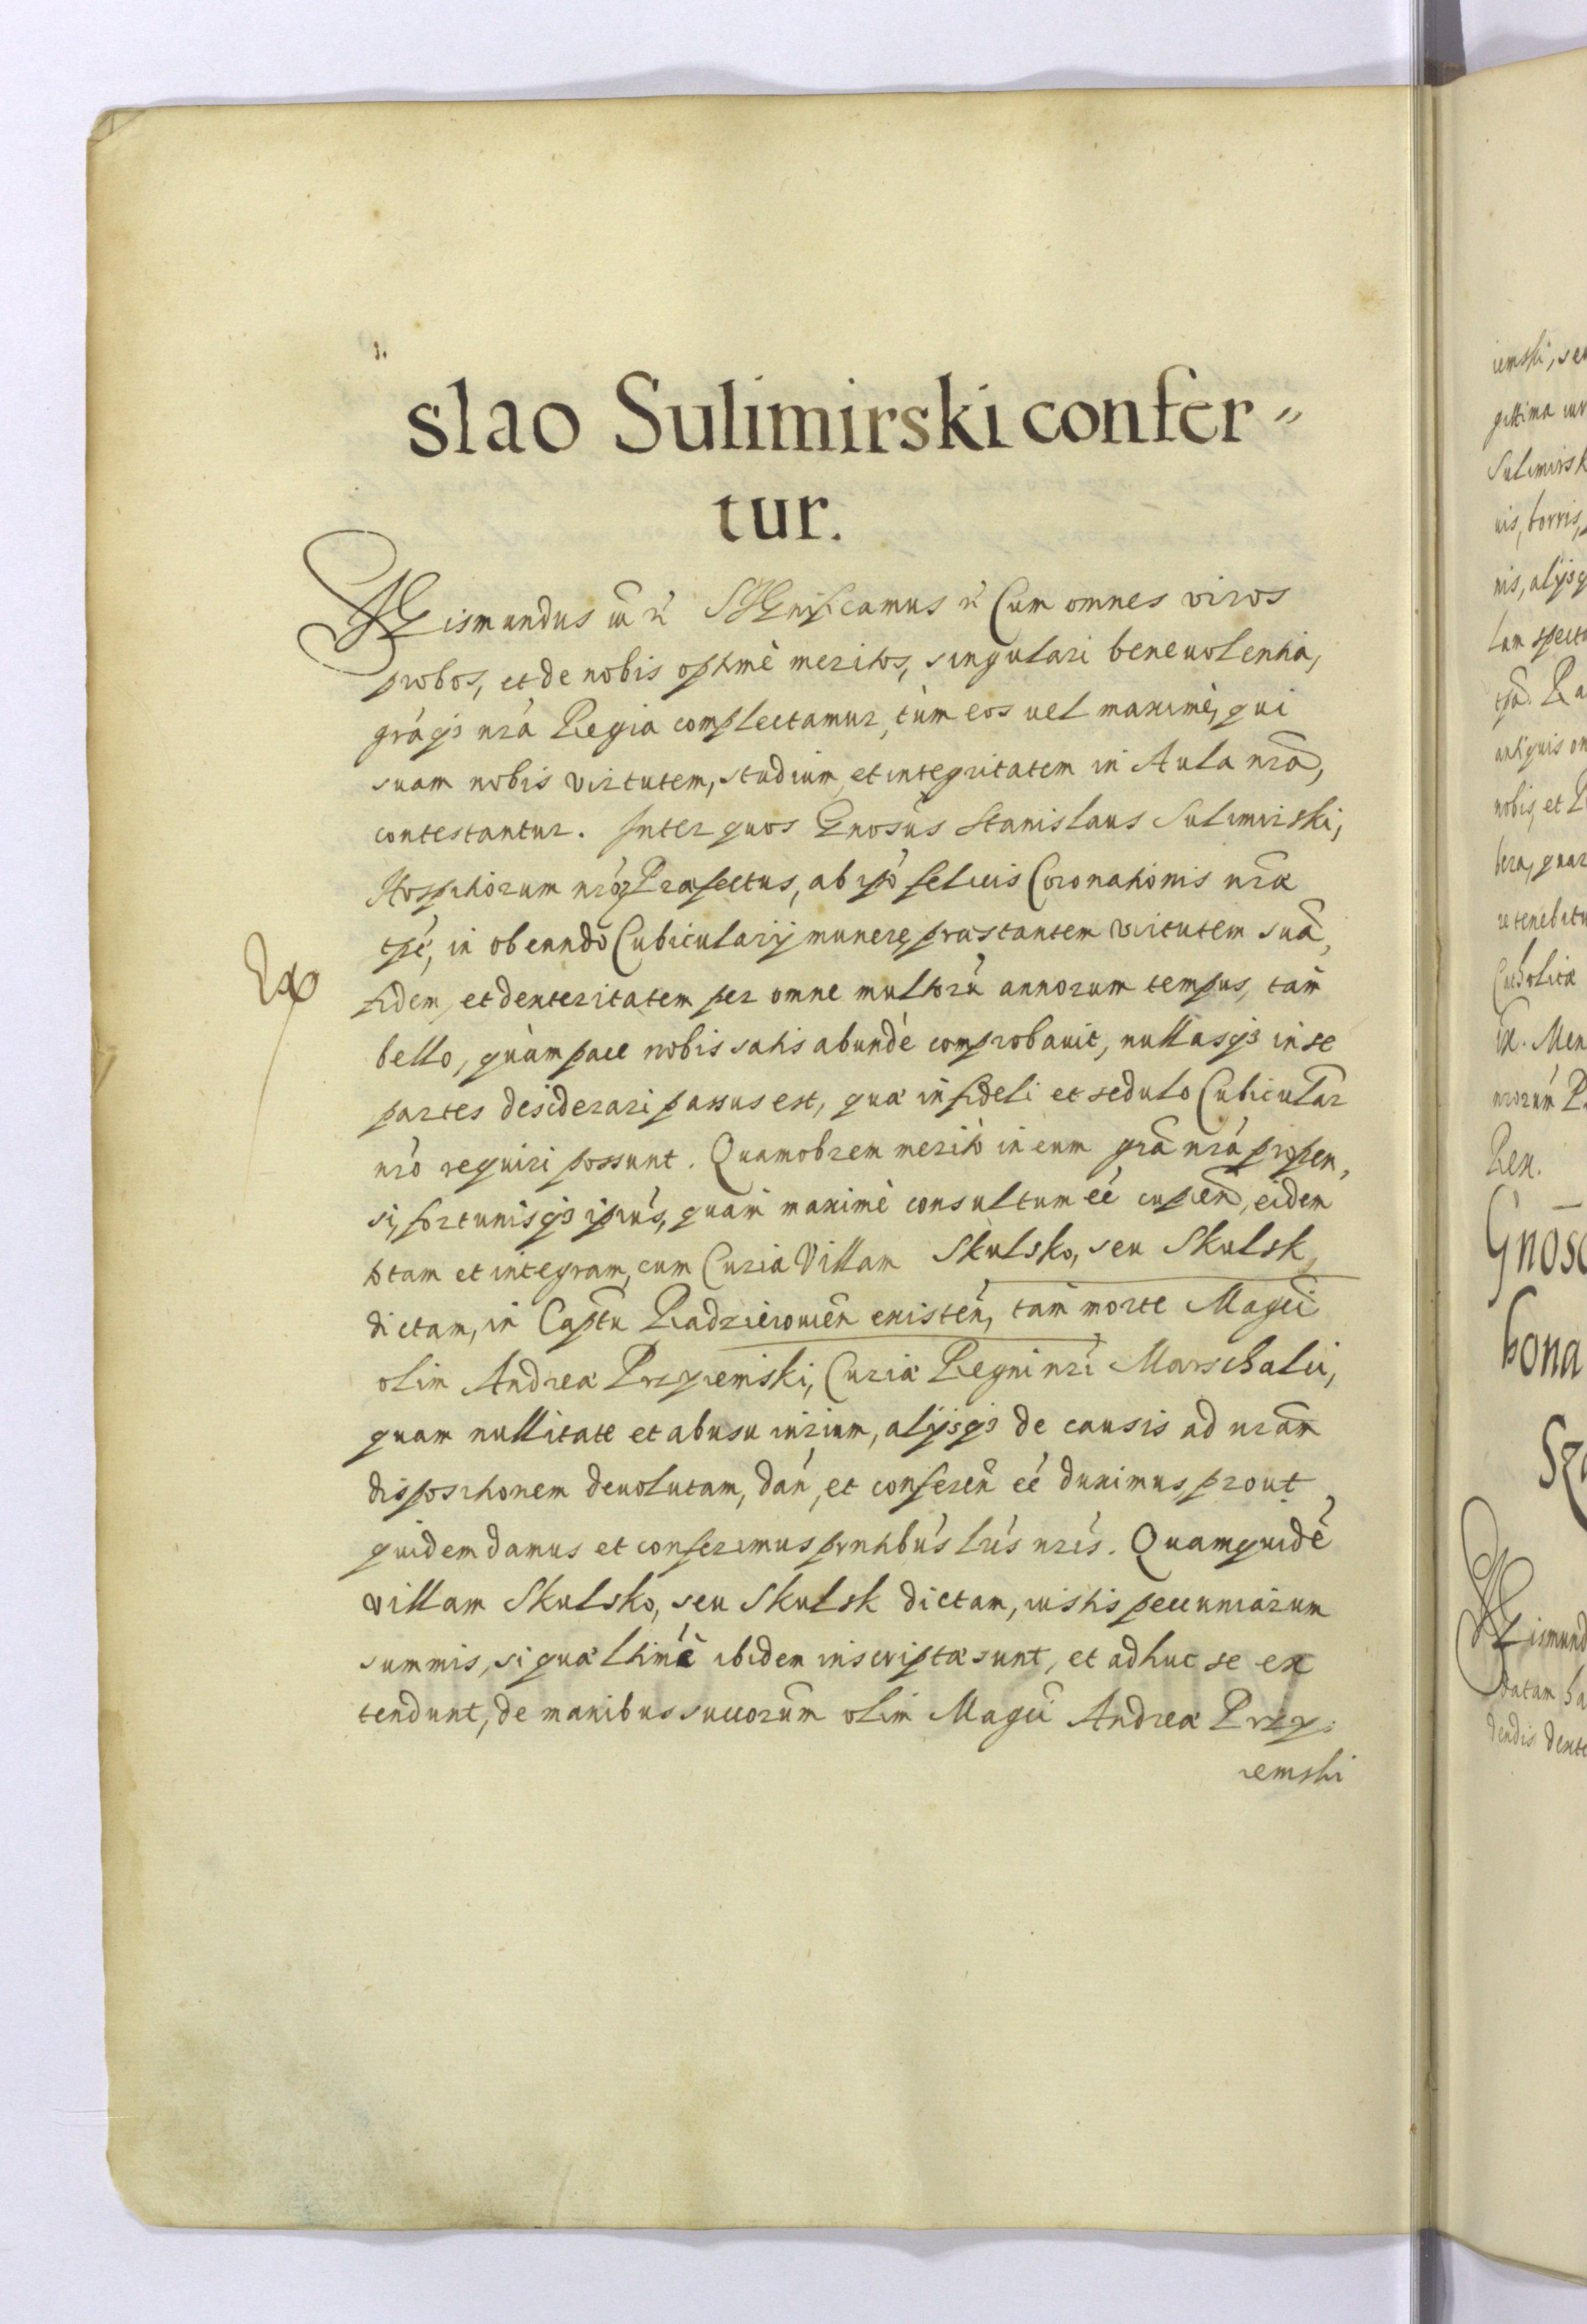 slao Sulimirski confer"
tur.
SIGismundus etc̃ SIGnificamus etc̃ Cum omnes viros
probos, et de nobis optimè meritos, singulari beneuolentia,
gráq3 nrá Regia complectamur, tùm eos uel maximè, qui
suam nobis virtutem, studium, et integritatem in Aula nrã,
contestantur. Inter quos Gnosus Stanislaus Sulimirski,
Hospitiorum nror Præfectus, ab ipo felicis Coronationis nræ
tpé, in obeundo Cubicularij munere, præstantem virtutem suã,
fidem, et dexteritatem per omne multorũ annorum tempus, tam
bello, quàm pace nobis satis abundè comprobauit, nullasq3 in se
partes desiderari passus est, quæ in fideli et sedulo Cubicular
nró requiri possunt. Quamobrem meritò in eum grã nrá propen,
si, fortunisq3 ipius, quam maximè consultum eé cupien, eidem
totam et integram, cum Curia Villam Skulsko, seu Skulsk,
dictam, in Captu Radzieiouien existen, tam morte Magci
olim Andreæ Przyiemski, Curiæ Regni nri Marschalci,
quam nullitate et abusu iurium, alijsq3 de causis ad nram
dispositionem deuolutam, dan, et conferen eé duximus, prout
quidem damus et conferimus pntibus lris nris. Quamquidé
villam Skulsko, seu Skulsk dictam, iustis pecuniarum
summis, si quæ ltimè ibidem inscriptæ sunt, et adhuc se ex
tendunt, de manibus succorum olim Magci Andreæ Przy:
iemski
iemski, seu
gittima iur
Sulimirsk
nis, alijsq
antiquis
nobis, et
re tenebitu
Catholicæ
Rex.
Gnoso
bona
Sza
SIGismund